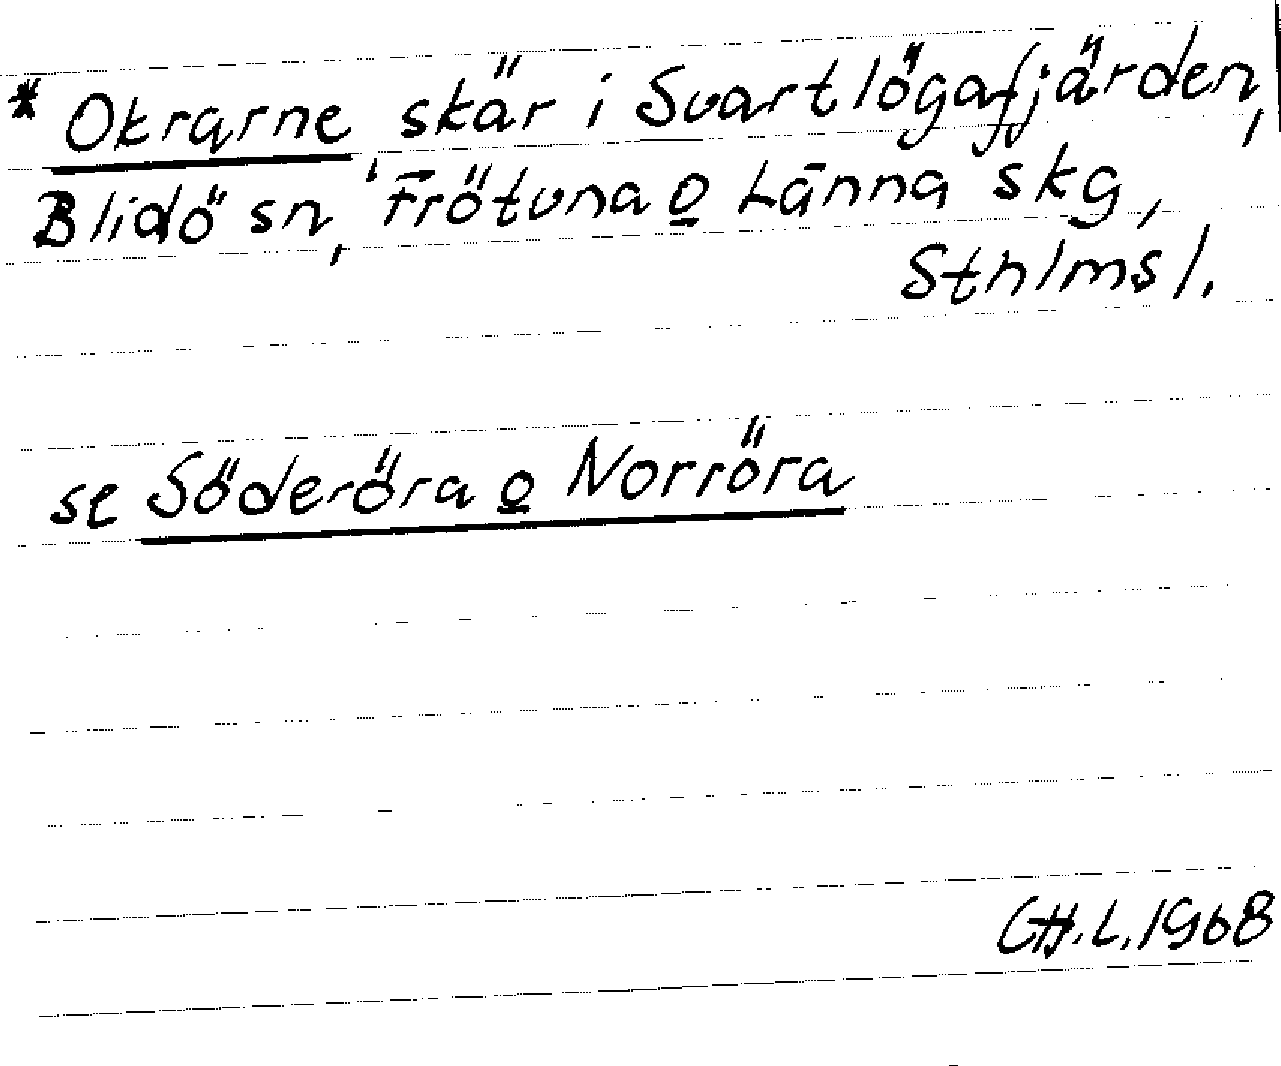 * Okrarne, skär i Svartlögafjärden,
Blidö sn, Frötuna o Länna skg,
Sthlms l.
se Söderöra o Norröra
CH.L. 1968